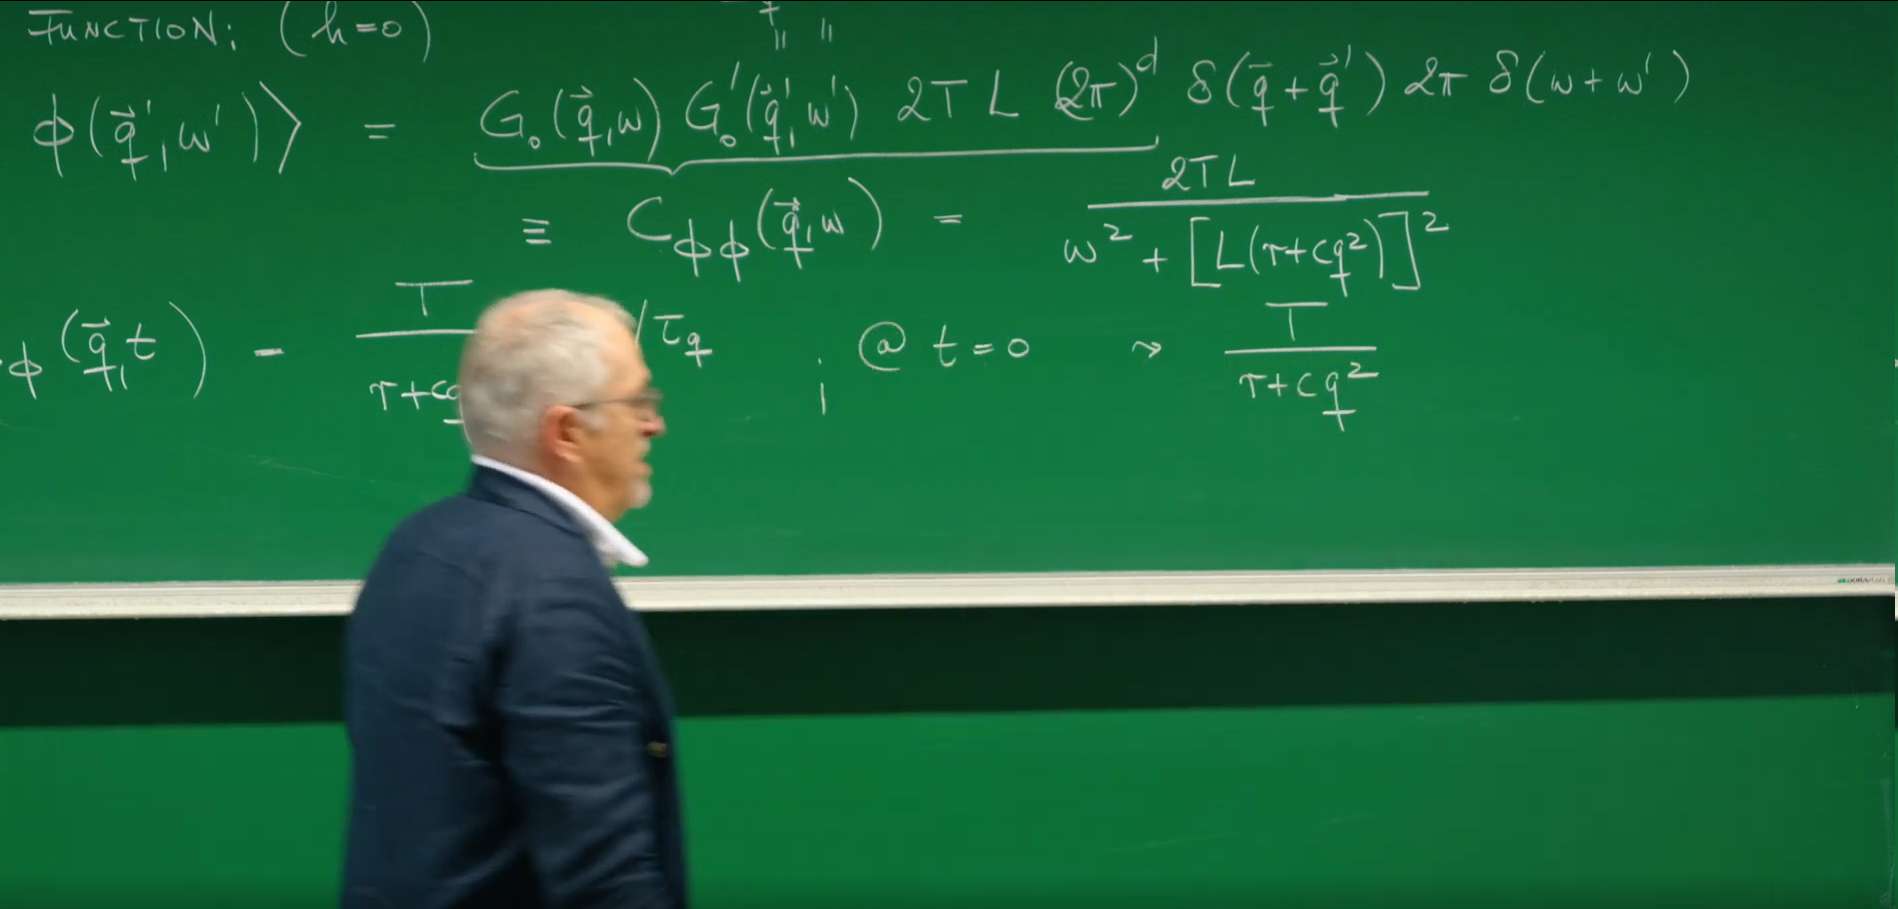 FUNCTION: (h=0)
ϕ(q⃗′,ω′)⟩ = G₀(q⃗,ω) G₀′(q⃗′,ω′) 2TL (2π)ᵈ δ(q⃗+q⃗′) 2π δ(ω+ω′)
≡ C_ϕϕ(q⃗,ω) = 2TL / ω² + [L(r+cq²)]²
ϕ(q⃗,t) - T / r+cq /τ_q ; @ t=0 ⤳ T / r+cq²